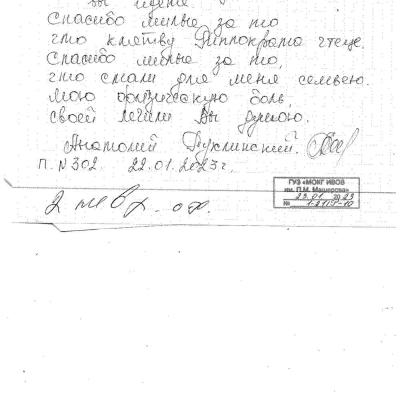 вы идете.
Спасибо милые за то
что клятву Гиппократа чтеце.
Спасибо милые за то,
что стали для меня семьею.
Мою физическую боль,
своей лечили Вы душою.
Анатолий Пуклинский.
П. N 302. 22.01.2023г.
ГУЗ «МОКГ ИВОВ
им. П.М. Машерова»
23.01 2023
№
2